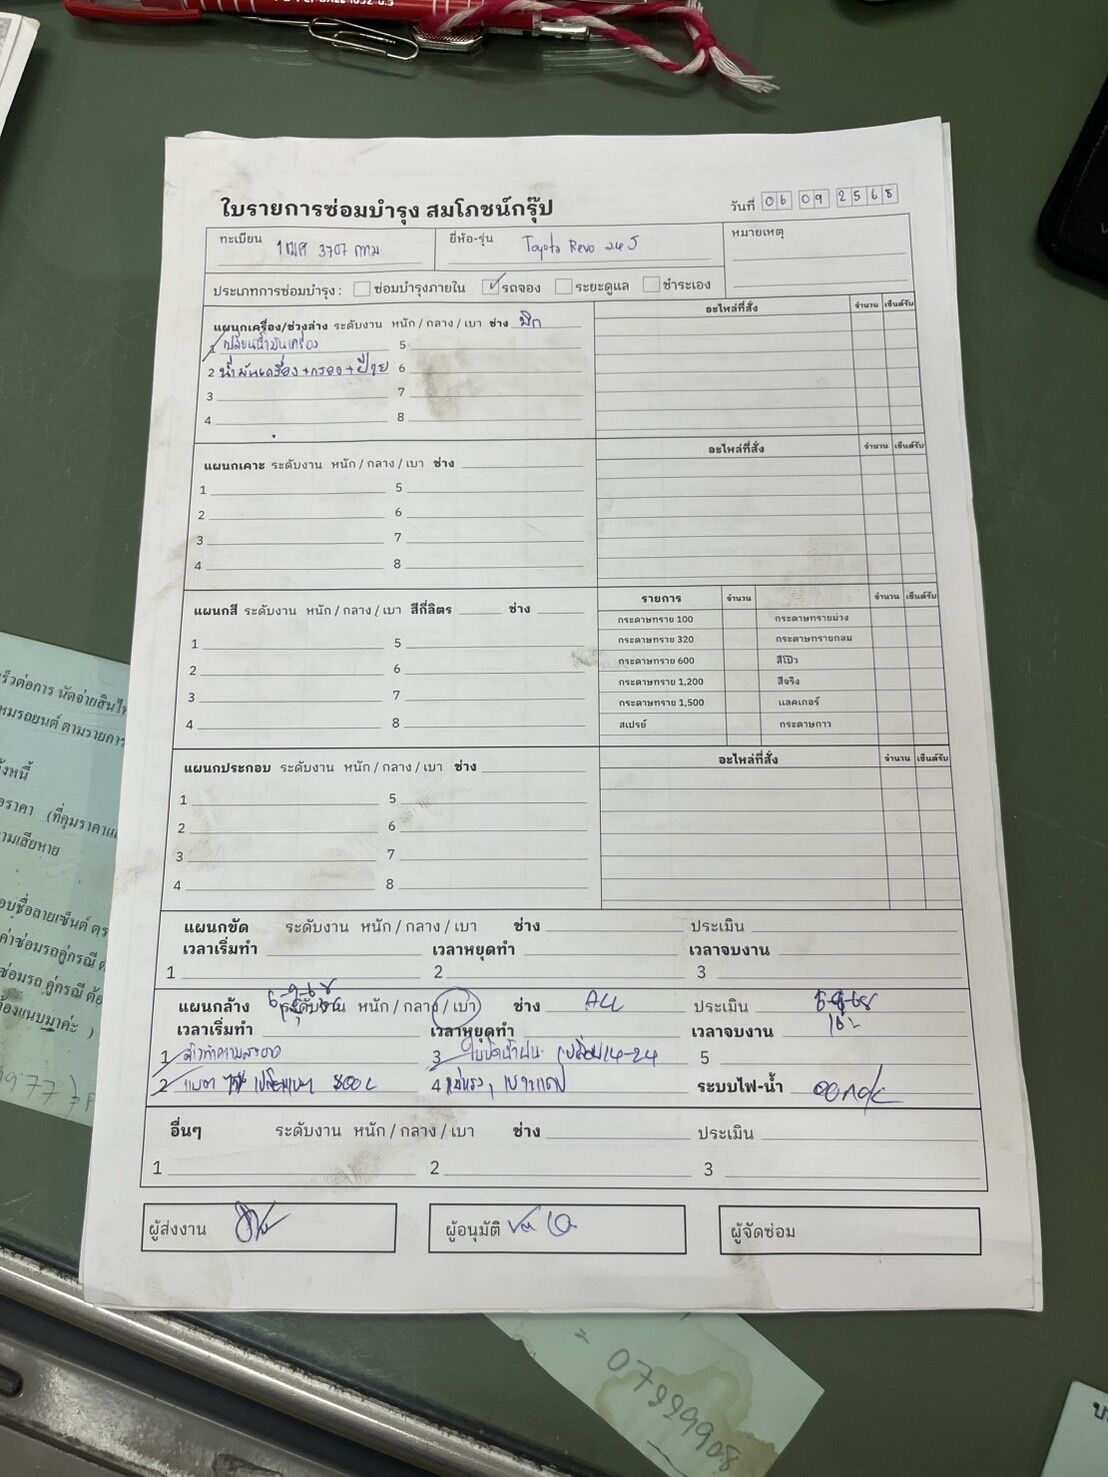 ใบรายการซ่อมบำรุง สมโภชน์กรุ๊ป
วันที่ 06 09 2568
ทะเบียน 3707 กทม
ยี่ห้อ-รุ่น Toyota Revo 24 J
หมายเหตุ
ประเภทการซ่อมบำรุง : ซ่อมบำรุงภายใน รถจอง ระยะดูแล ชำระเอง
แผนกเครื่อง/ช่วงล่าง ระดับงาน หนัก / กลาง / เบา ช่าง
อะไหล่ที่สั่ง จำนวน เซ็นต์รับ
1 เปลี่ยนน้ำมันเครื่อง 5
2 น้ำมันเครื่อง+กรอง+ 6
3 7
4 8
แผนกเคาะ ระดับงาน หนัก / กลาง / เบา ช่าง
อะไหล่ที่สั่ง จำนวน เซ็นต์รับ
1 5
2 6
3 7
4 8
แผนกสี ระดับงาน หนัก / กลาง / เบา สีกี่ลิตร ช่าง
รายการ จำนวน จำนวน เซ็นต์รับ
กระดาษทราย 100 กระดาษทรายม่วง
กระดาษทราย 320 กระดาษทรายกลม
กระดาษทราย 600 สีโป๊ว
กระดาษทราย 1,200 สีจริง
กระดาษทราย 1,500 แลคเกอร์
สเปรย์ กระดาษกาว
1 5
2 6
3 7
4 8
แผนกประกอบ ระดับงาน หนัก / กลาง / เบา ช่าง
อะไหล่ที่สั่ง จำนวน เซ็นต์รับ
1 5
2 6
3 7
4 8
แผนกขัด ระดับงาน หนัก / กลาง / เบา ช่าง ประเมิน
เวลาเริ่มทำ เวลาหยุดทำ เวลาจบงาน
1 2 3
แผนกล้าง ระดับงาน หนัก / กลาง / เบา ช่าง ALL ประเมิน 6-9-68
เวลาเริ่มทำ เวลาหยุดทำ เวลาจบงาน
1 ล้างทำความสะอาด 3 ใบปัดน้ำฝน 14-24 5
2 4 ระบบไฟ-น้ำ
อื่นๆ ระดับงาน หนัก / กลาง / เบา ช่าง ประเมิน
1 2 3
ผู้ส่งงาน
ผู้อนุมัติ
ผู้จัดซ่อม